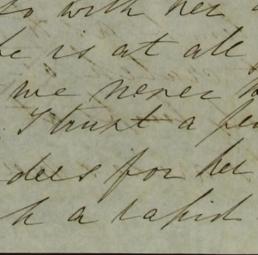 to with her
he is at all
we never
I trust a few
does for her
h a rapid